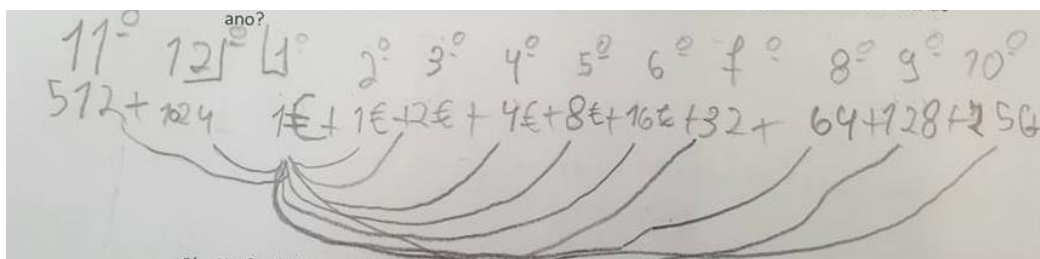 ano?
11º 12º 1º 2º 3º 4º 5º 6º 7º 8º 9º 10º
512+ 1024 1€+ 1€+2€+ 4€+8€+16€+32+ 64+128+256